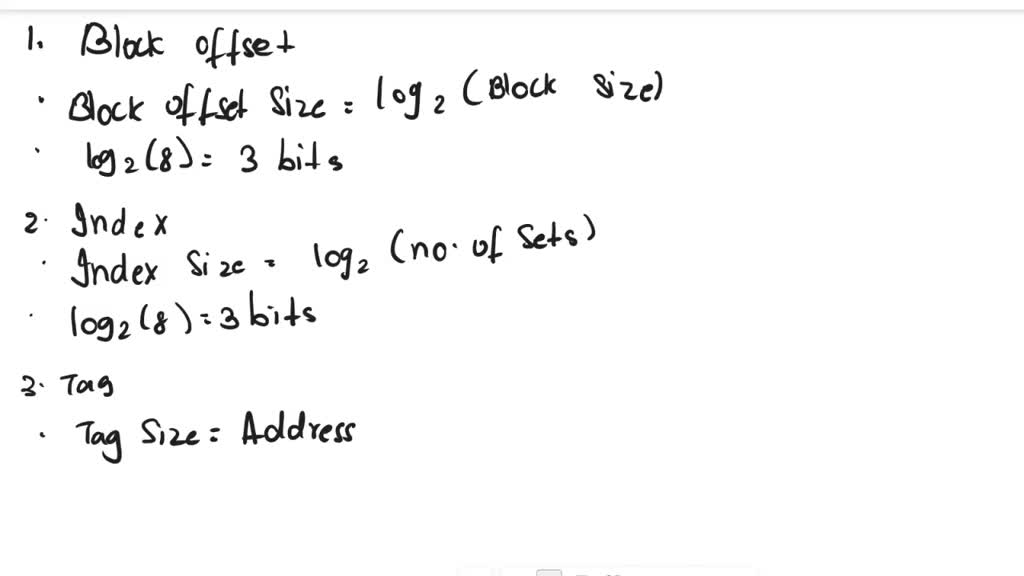 1. Block offset
· Block offset Size = log2 (Block Size)
· log2(8) = 3 bits
2. Index
· Index Size = log2 (no. of Sets)
· log2(8) = 3 bits
3. Tag
· Tag Size = Address